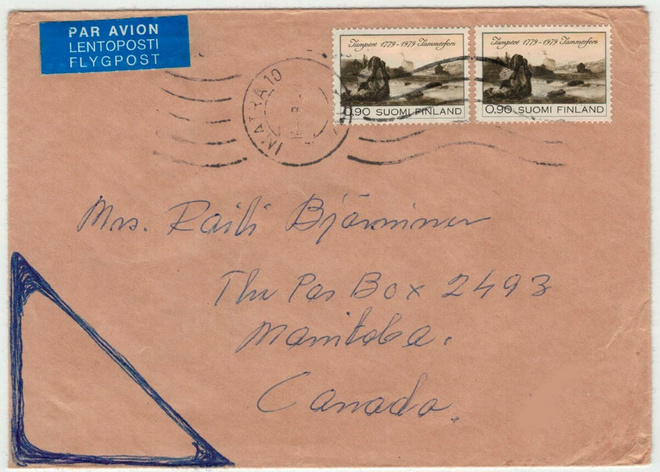 PAR AVION
LENTOPOSTI
FLYGPOST
Tampere 1779-1979 Tammerfors
0,90 SUOMI FINLAND
Tampere 1779-1979 Tammerfors
0,90 SUOMI FINLAND
IMATRA 10
Mrs. Raili Björninen
The Pas Box 2493
Manitoba.
Canada.